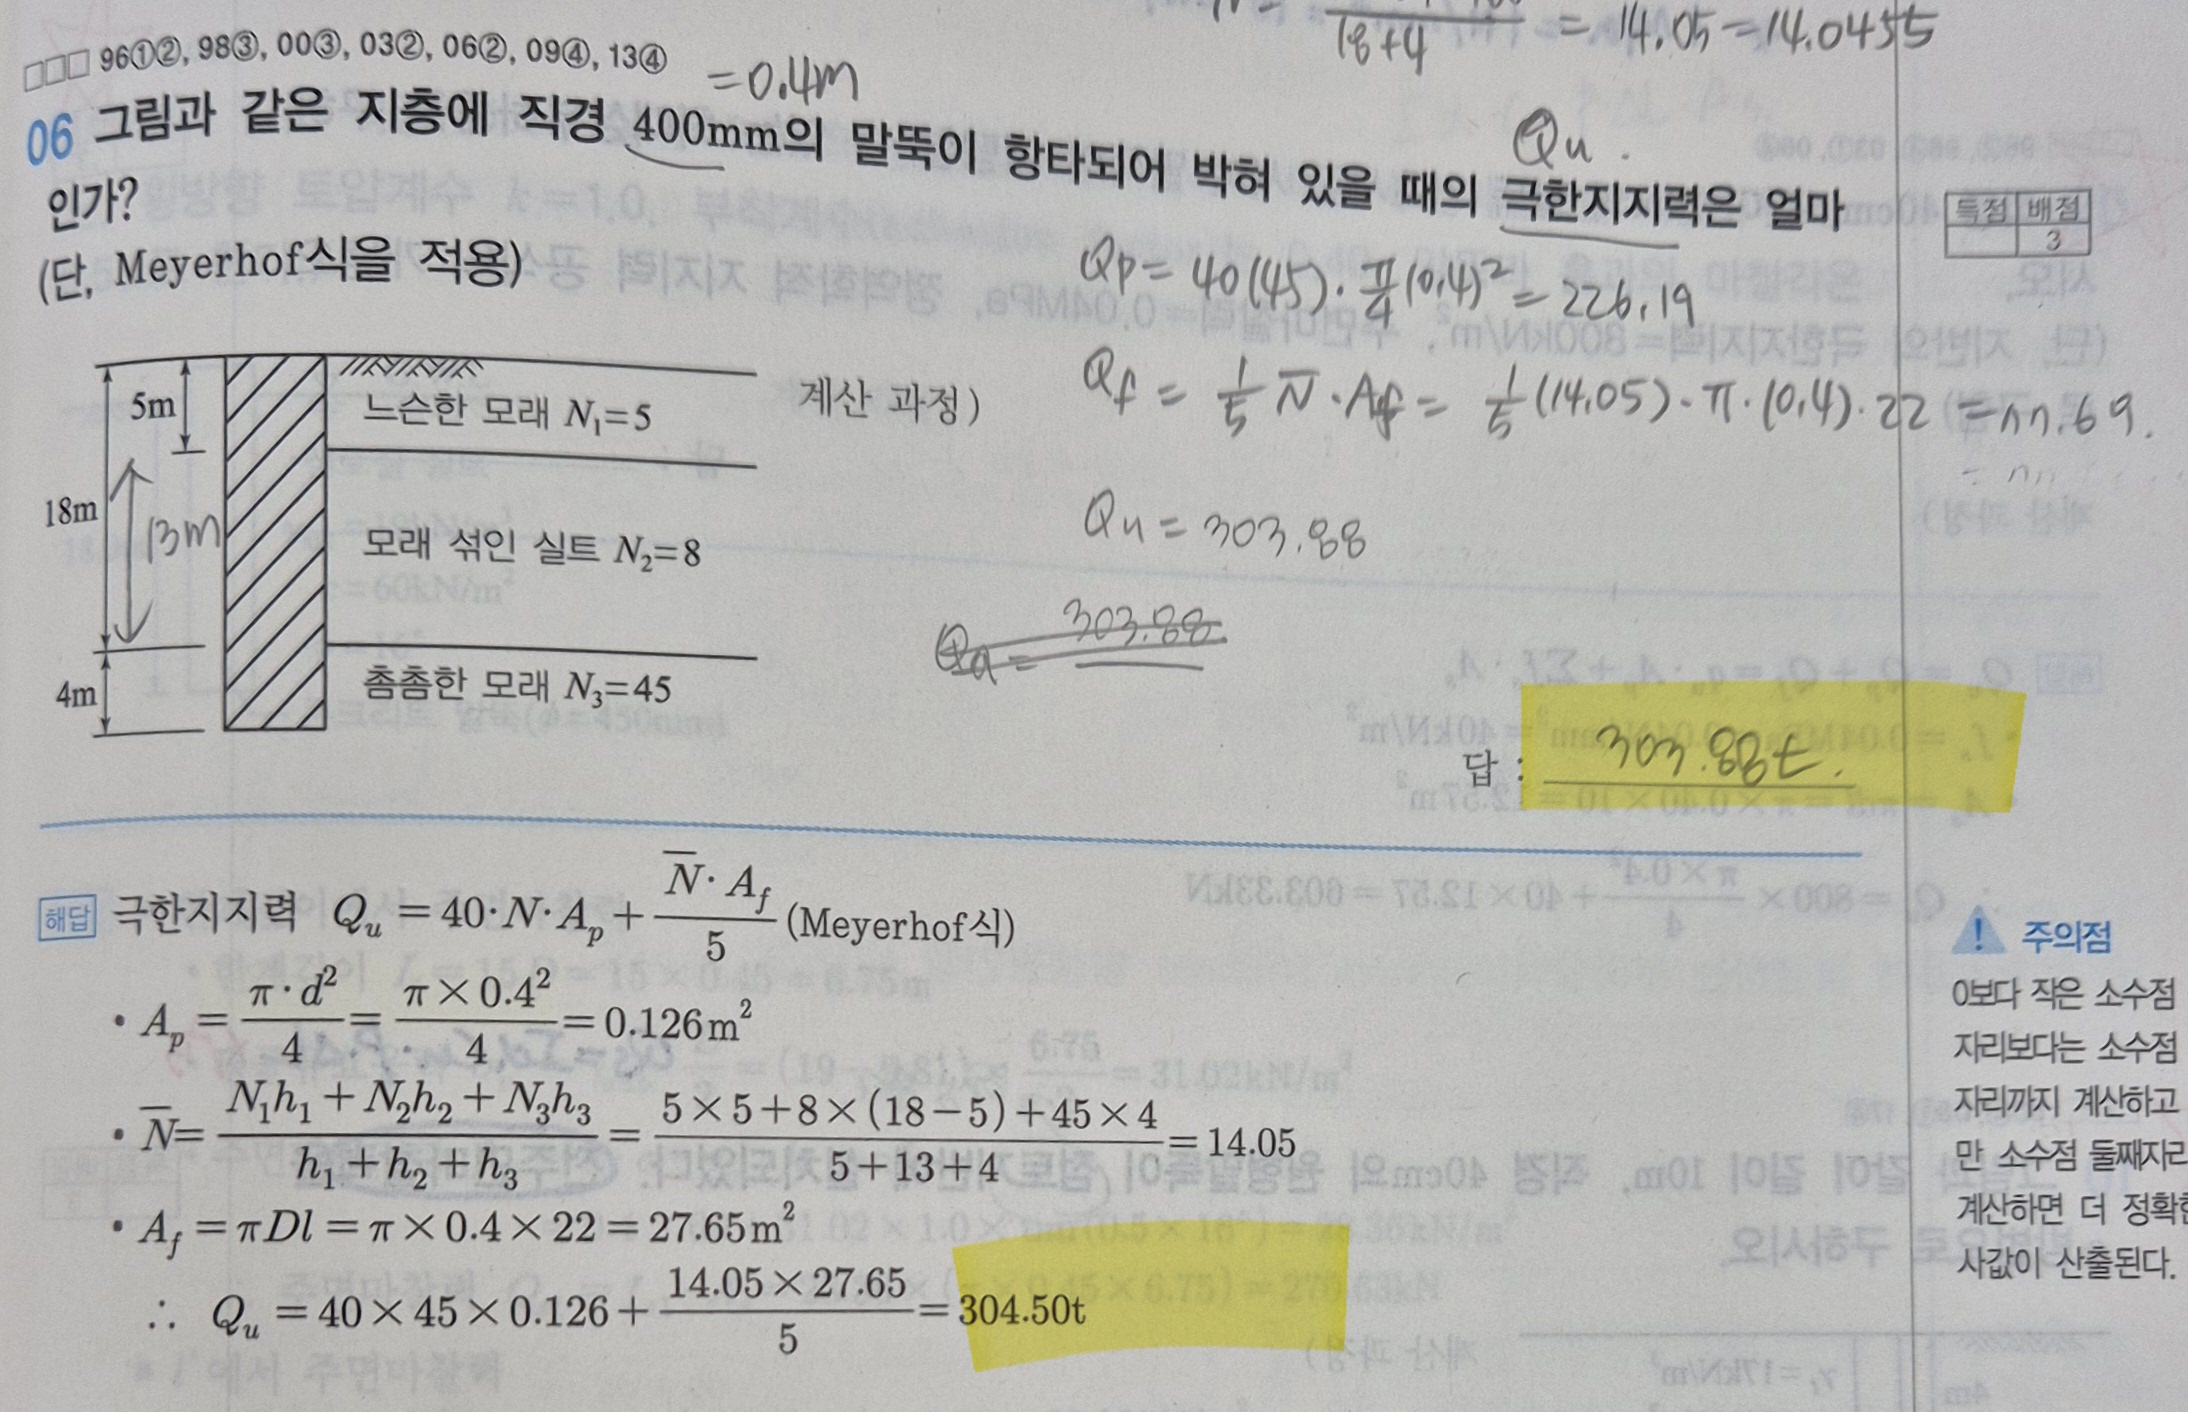 18+4 = 14.05 - 14.0455
96①②, 98③, 00③, 03②, 06②, 09④, 13④
=0.4m
06 그림과 같은 지층에 직경 400mm의 말뚝이 항타되어 박혀 있을 때의 극한지지력은 얼마
Qu.
인가?
(단, Meyerhof식을 적용)
득점 배점
3
Qp = 40(45)·π/4(0.4)² = 226.19
5m
느슨한 모래 N₁=5
계산 과정)
Qf = 1/5 N̅·Af = 1/5(14.05)·π·(0.4)·22 = 77.69.
18m
13m
모래 섞인 실트 N₂=8
Qu = 303.88
Qa = 303.88
4m
촘촘한 모래 N₃=45
답 : 303.88t.
해답 극한지지력 Qu = 40·N·Ap + N̅·Af/5 (Meyerhof식)
• Ap = π·d²/4 = π×0.4²/4 = 0.126m²
• N̅ = N₁h₁+N₂h₂+N₃h₃/h₁+h₂+h₃ = 5×5+8×(18−5)+45×4/5+13+4 = 14.05
• Af = πDl = π×0.4×22 = 27.65m²
∴ Qu = 40×45×0.126 + 14.05×27.65/5 = 304.50t
! 주의점
0보다 작은 소수점
자리보다는 소수점
자리까지 계산하고
만 소수점 둘째자리
계산하면 더 정확한
사값이 산출된다.